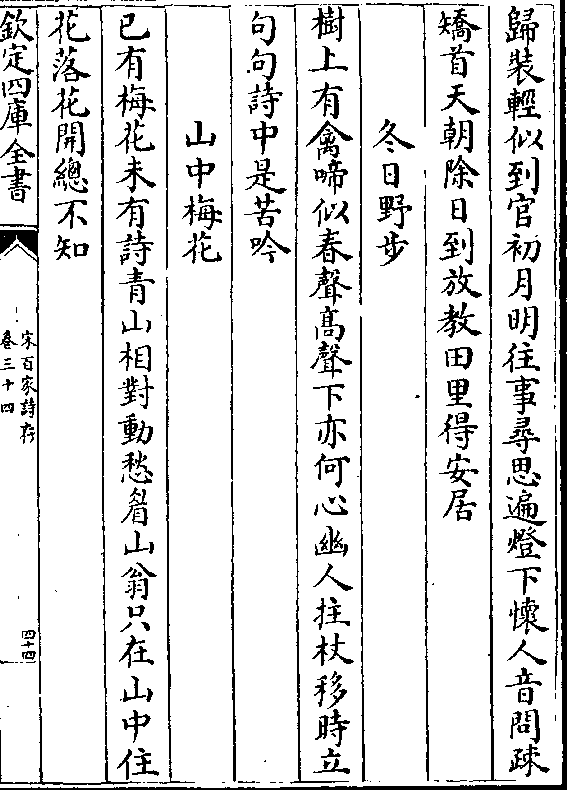 歸裝輕似到官初月明往事尋思遍燈下懷人音問疎
矯首天朝除日到放教田里得安居
冬日野步
樹上有禽啼似春聲高聲下亦何心幽人拄杖移時立
句句詩中是苦吟
山中梅花
已有梅花未有詩青山相對動愁眉山翁只在山中住
花落花開總不知
欽定四庫全書
宋百家詩存
卷三十四
四十四